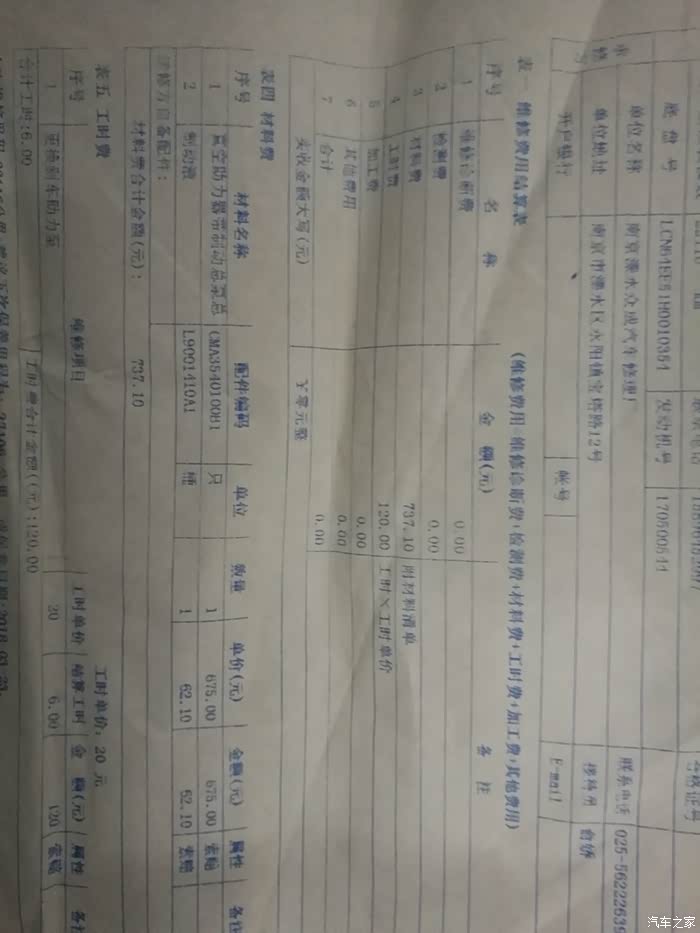 底盘号 LCN64EE51H0010354 发动机号 170500544
单位名称 南京溧水众成汽车修理厂 联系电话 025-56222639
单位地址 南京市溧水区永阳镇宝塔路12号
开户银行 帐号 E-mail
表一 维修费用结算表 (维修费用=维修诊断费+检测费+材料费+工时费+加工费+其他费用)
序号 名 称 金 额(元) 备 注
1 维修诊断费 0.00
2 检测费 0.00
3 材料费 737.10 附材料清单
4 工时费 120.00 工时×工时单价
5 加工费 0.00
6 其他费用 0.00
7 合计 0.00
实收金额大写(元) ￥零元整
表四 材料费
序号 材料名称 配件编码 单位 数量 单价(元) 金额(元) 属性 备注
1 真空助力器带制动总泵总 CMA3540100B1 只 1 675.00 675.00 索赔
2 制动液 L9001410A1 桶 1 62.10 62.10 索赔
托修方自备配件:
材料费合计金额(元): 737.10
表五 工时费 工时单价: 20 元
序号 维修项目 工时单价 结算工时 金 额(元) 属性 备注
1 更换刹车助力泵 20 6.00 120 索赔
合计工时:6.00 工时费合计金额((元):120.00